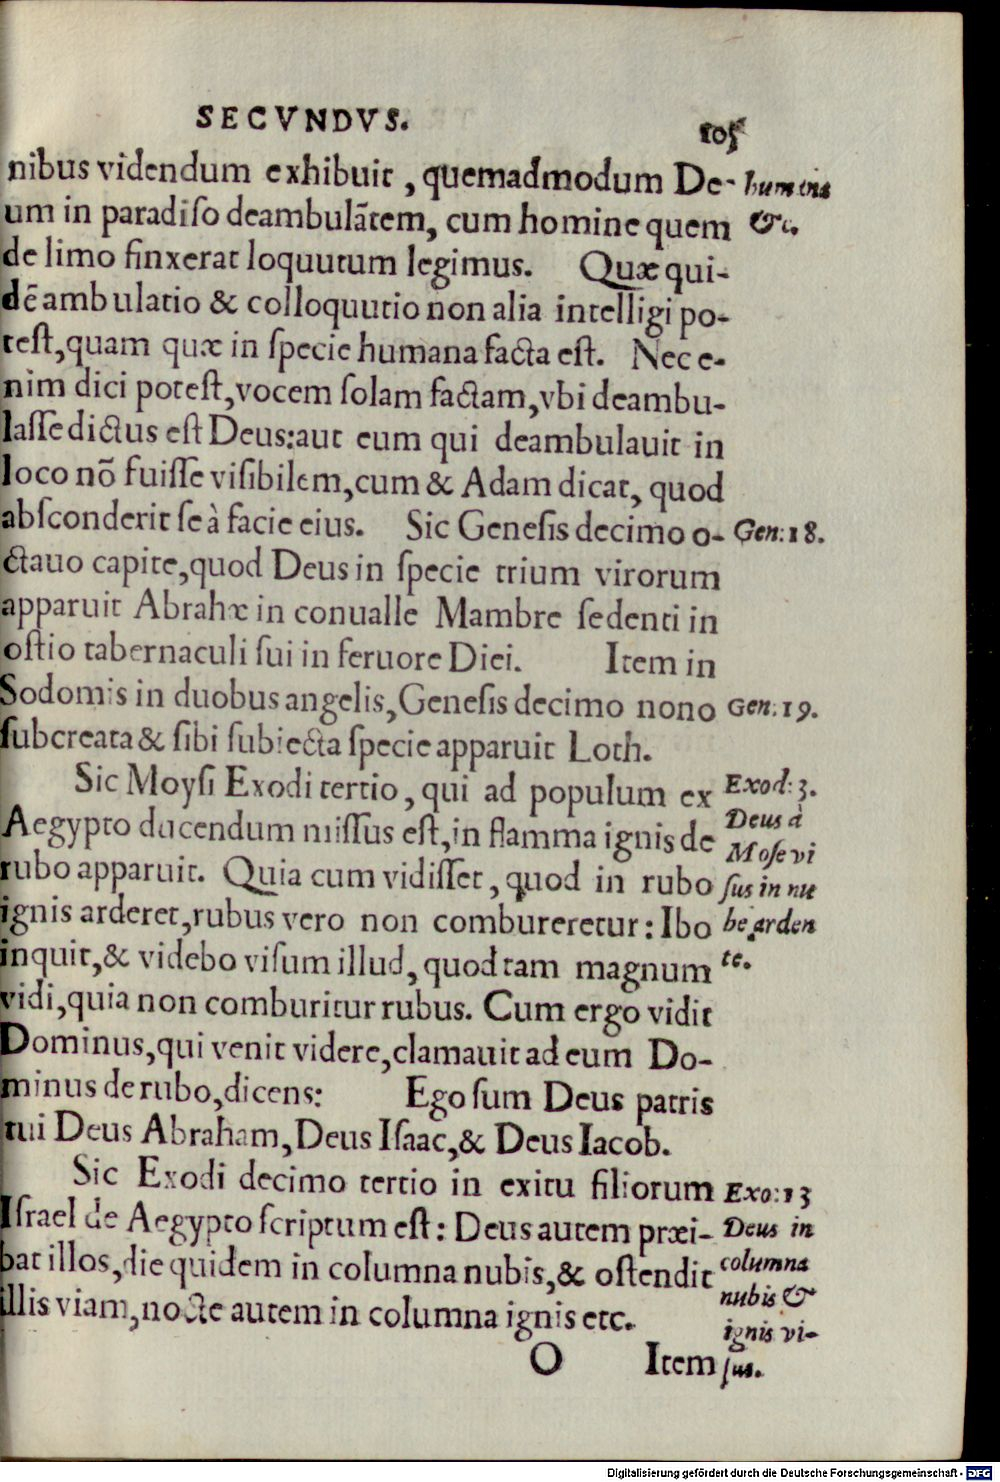 SECVNDVS.
105
nibus videndum exhibuit, quemadmodum De-
um in paradiſo deambulātem, cum homine quem
de limo finxerat loquutum legimus. Quæ qui-
dē ambulatio & colloquutio non alia intelligi po-
teſt, quam quæ in ſpecie humana facta eſt. Nec e-
nim dici poteſt, vocem ſolam factam, vbi deambu-
laſſe dictus eſt Deus: aut eum qui deambulauit in
loco nō fuiſſe viſibilem, cum & Adam dicat, quod
abſconderit ſe à facie eius. Sic Geneſis decimo o-
ctauo capite, quod Deus in ſpecie trium virorum
apparuit Abrahæ in conualle Mambre ſedenti in
oſtio tabernaculi ſui in feruore Diei. Item in
Sodomis in duobus angelis, Geneſis decimo nono
ſubcreata & ſibi ſubiecta ſpecie apparuit Loth.
Sic Moyſi Exodi tertio, qui ad populum ex
Aegypto ducendum miſſus eſt, in flamma ignis de
rubo apparuit. Quia cum vidiſſet, quod in rubo
ignis arderet, rubus vero non combureretur: Ibo
inquit, & videbo viſum illud, quod tam magnum
vidi, quia non comburitur rubus. Cum ergo vidit
Dominus, qui venit videre, clamauit ad eum Do-
minus de rubo, dicens: Ego ſum Deus patris
tui Deus Abraham, Deus Iſaac, & Deus Iacob.
Sic Exodi decimo tertio in exitu filiorum
Iſrael de Aegypto ſcriptum eſt: Deus autem præi-
bat illos, die quidem in columna nubis, & oſtendit
illis viam, nocte autem in columna ignis etc.
O Item
&c.
Gen: 18.
Gen. 19.
Exod: 3.
Deus à
Moſe vi
ſus in nu
be arden
te.
Exo: 13
Deus in
columna
nubis &
ignis vi-
ſus.
Digitalisierung gefördert durch die Deutsche Forschungsgemeinschaft - DFG